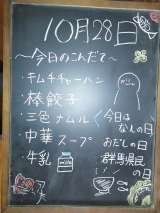 10月28日
～今日のこんだて～
・キムチチャーハン
・棒餃子
・三色ナムル
・中華スープ
・牛乳
〈今日は
なんの日〉
おだしの日
群馬県民
の日